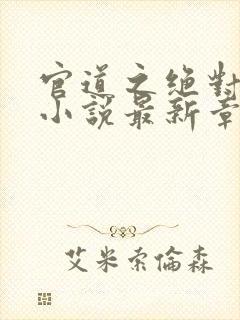 官道之絕對
小說最新章
艾米索倫森